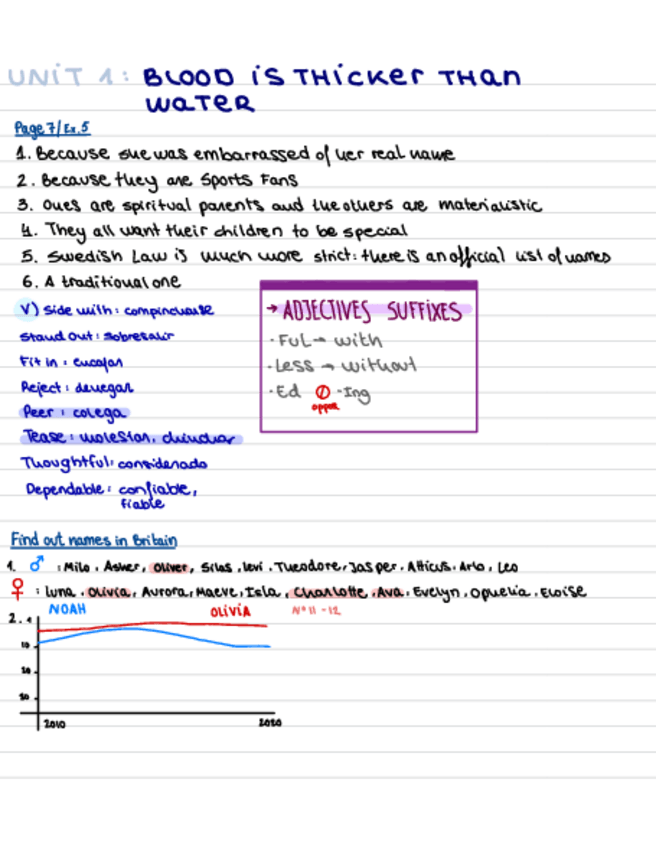 UNIT 1: BLOOD IS THICKER THAN
WATER
Page 7/Ex.5
1. Because she was embarrassed of her real name
2. Because they are Sports Fans
3. Ones are spiritual parents and the others are materialistic
4. They all want their children to be special
5. Swedish Law is much more strict: there is an official list of names
6. A traditional one
V) Side with: compincharse
Stand Out: sobresalir
Fit in: encajar
Reject: denegar
Peer: colega
Tease: molestar, chinchar
Thoughtful: considerado
Dependable: confiable,
fiable
→ ADJECTIVES SUFFIXES
- Ful → with
- Less → without
- Ed - Ing
oppos
Find out names in Britain
1. ♂ : Milo, Asher, Oliver, Silas, levi, Theodore, Jasper, Atticus, Arlo, Leo
♀ : luna, Olivia, Aurora, Maeve, Isla, Charlotte, Ava, Evelyn, Ophelia, Eloise
NOAH OLIVIA Nº 11-12
2. 1
10
20
30
2010 2020